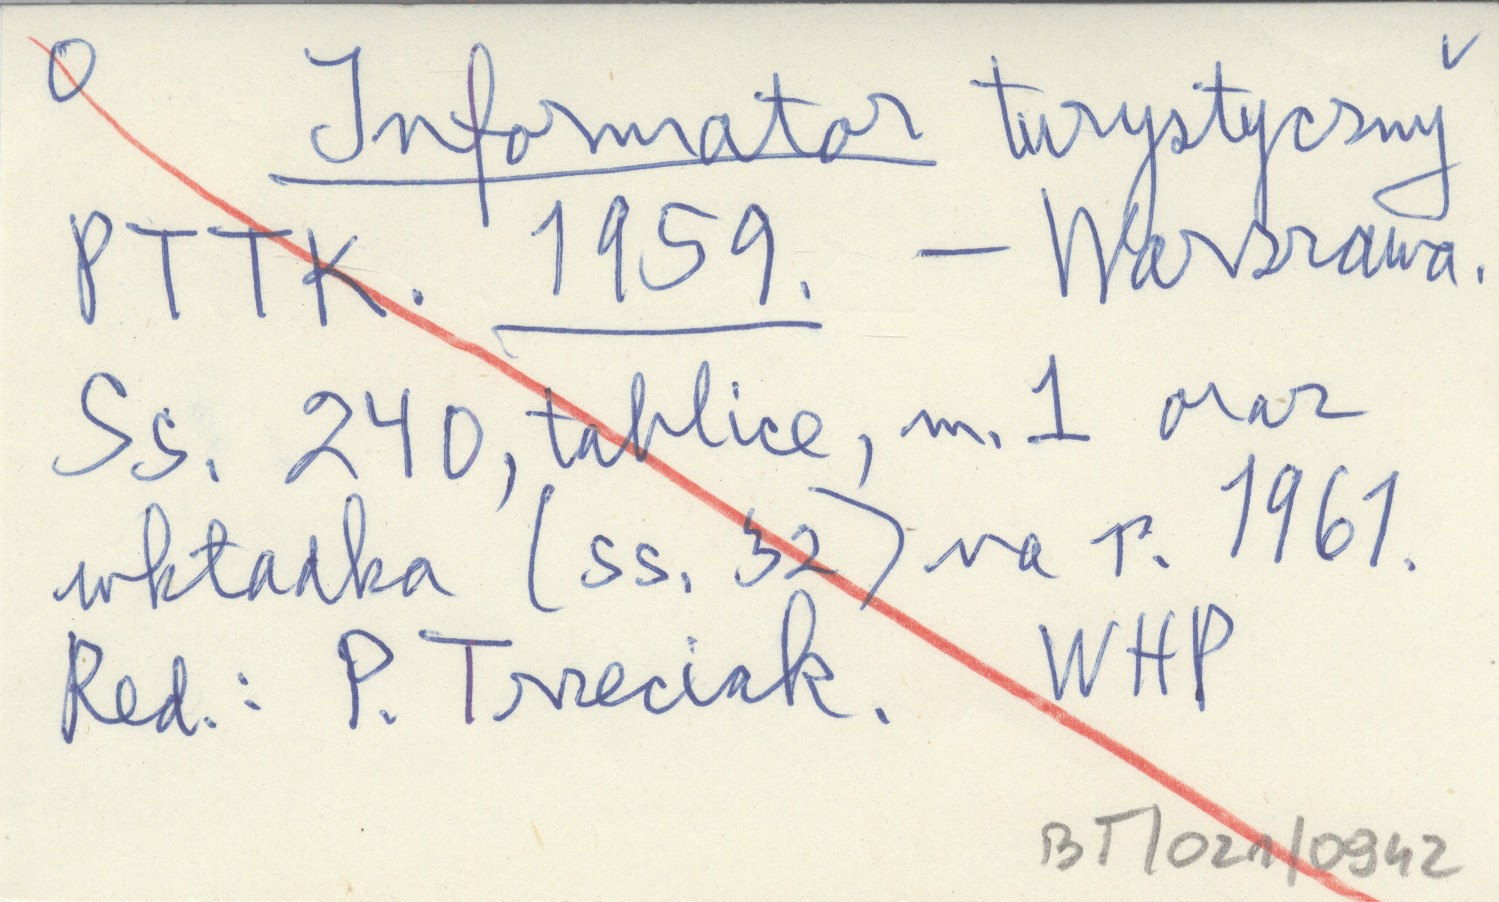 O Informator turystyczny
PTTK. 1959. — Warszawa.
Ss. 240, tablice, m. 1 oraz
wkładka (ss. 32) na r. 1961.
Red.: P. Trzeciak. WHP
BT/021/0942